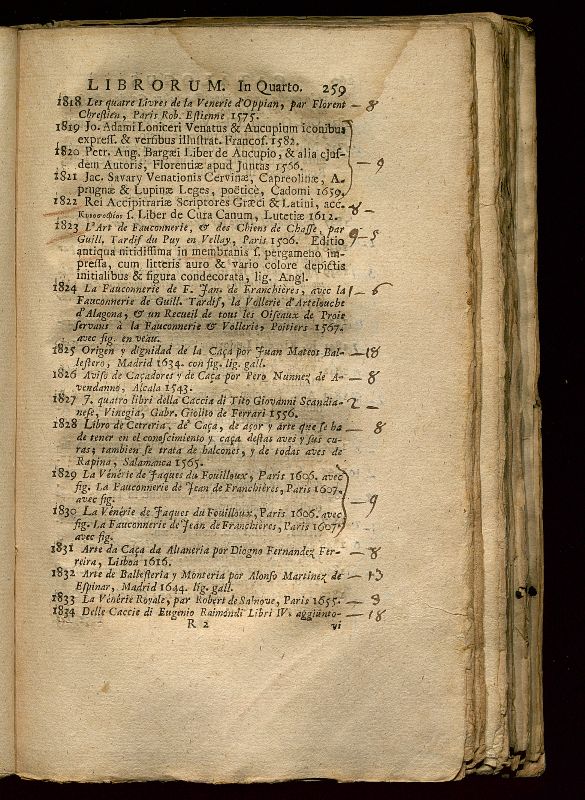 LIBRORUM. In Quarto. 259
1818 Les quatre Livres de la Venerie d'Oppian, par Florent — 8
Chrestien, Paris Rob. Estienne 1575.
1819 Jo. Adami Loniceri Venatus & Aucupium iconibus
express. & versibus illustrat. Francof. 1582.
1820 Petr. Ang. Bargæi Liber de Aucupio, & alia ejus-
dem Autoris, Florentiæ apud Juntas 1566. — 9
1821 Jac. Savary Venationis Cervinæ, Capreolinæ, A-
prugnæ & Lupinæ Leges, poëticè, Cadomi 1659.
1822 Rei Accipitrariæ Scriptores Græci & Latini, acc. 8 —
s. Liber de Cura Canum, Lutetiæ 1612.
1823 L'Art de Fauconnerie, & des Chiens de Chasse, par 9 - 5
Guill. Tardif du Puy en Vellay, Paris 1506. Editio
antiqua nitidissima in membranis s. pergameno im-
pressa, cum litteris auro & vario colore depictis
initialibus & figura condecorata, lig. Angl.
1824 La Fauconnerie de F. Jan. de Franchières, avec la 1 — 6
Fauconnerie de Guill. Tardif, la Vollerie d'Artelouche
d'Alagona, & un Recueil de tous les Oiseaux de Proie
servans à la Fauconnerie & Vollerie, Poitiers 1567.
avec fig. en veau.
1825 Origen y dignidad de la Caça por Juan Mateos Bal- — 18
lestero, Madrid 1634. con fig. lig. gall.
1826 Aviso de Caçadores y de Caça por Pero Nunnez de A- — 8
vendanno, Alcala 1543.
1827 I. quatro libri della Caccia di Tito Giovanni Scandia- 2 —
nese, Vinegia, Gabr. Giolito de Ferrari 1556.
1828 Libro de Cetreria, de Caça, de açor y arte que se ha — 8
de tener en el conoscimiento y caça destas aves y sus cu-
ras; tambien se trata de halcones, y de todas aves de
Rapina, Salamanca 1565.
1829 La Vénérie de Jaques du Fouilloux, Paris 1606. avec
fig. La Fauconnerie de Jean de Franchières, Paris 1607.
avec fig. — 9
1830 La Vénérie de Jaques du Fouilloux, Paris 1606. avec
fig. La Fauconnerie de Jean de Franchières, Paris 1607.
avec fig.
1831 Arte da Caça da Altaneria por Diogno Fernandez Fer- — 8
reira, Lisboa 1616.
1832 Arte de Ballesteria y Monteria por Alonso Martinez de — 13
Espinar, Madrid 1644. lig. gall.
1833 La Vénérie Royale, par Robert de Salnove, Paris 1655. — 3
1834 Delle Caccie di Eugenio Raimondi Libri IV. aggiunto- — 18
R 2 vi